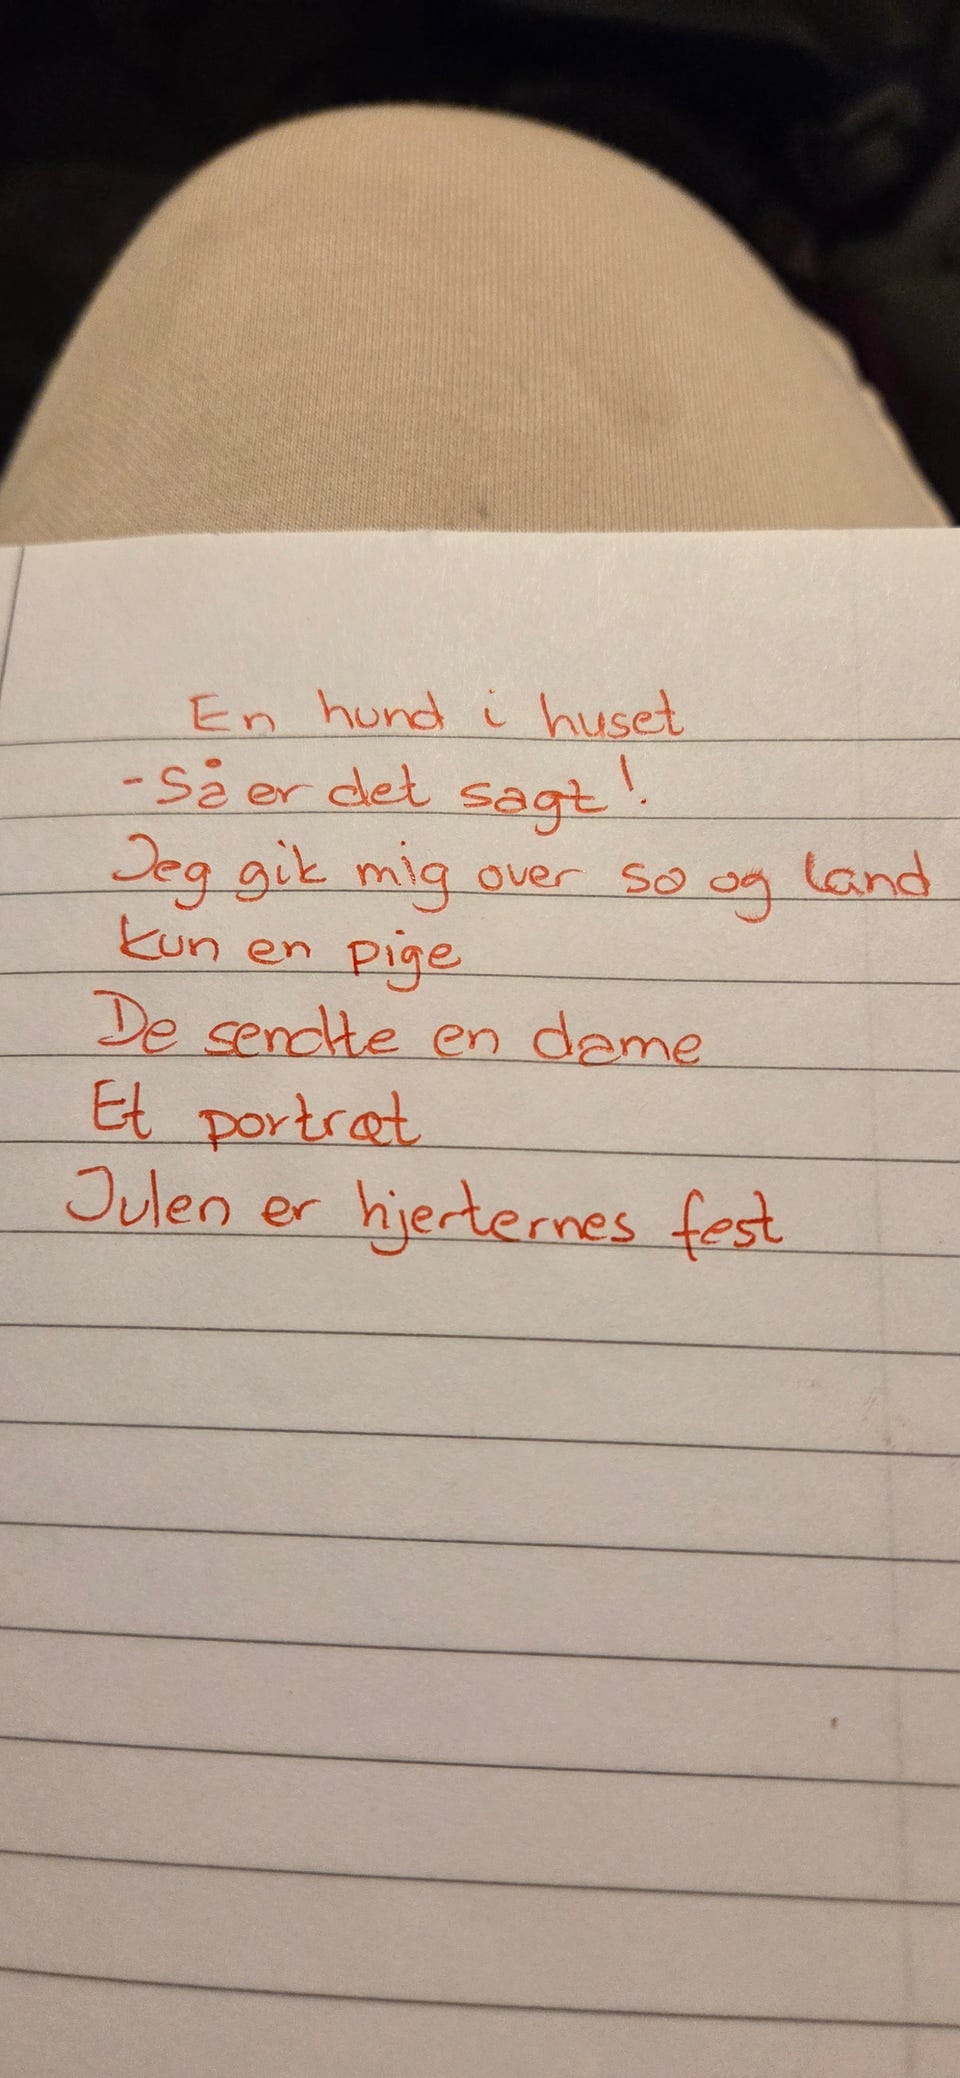 En hund i huset
- Så er det sagt!
Jeg gik mig over so og land
Kun en pige
De sendte en dame
Et portræt
Julen er hjerternes fest